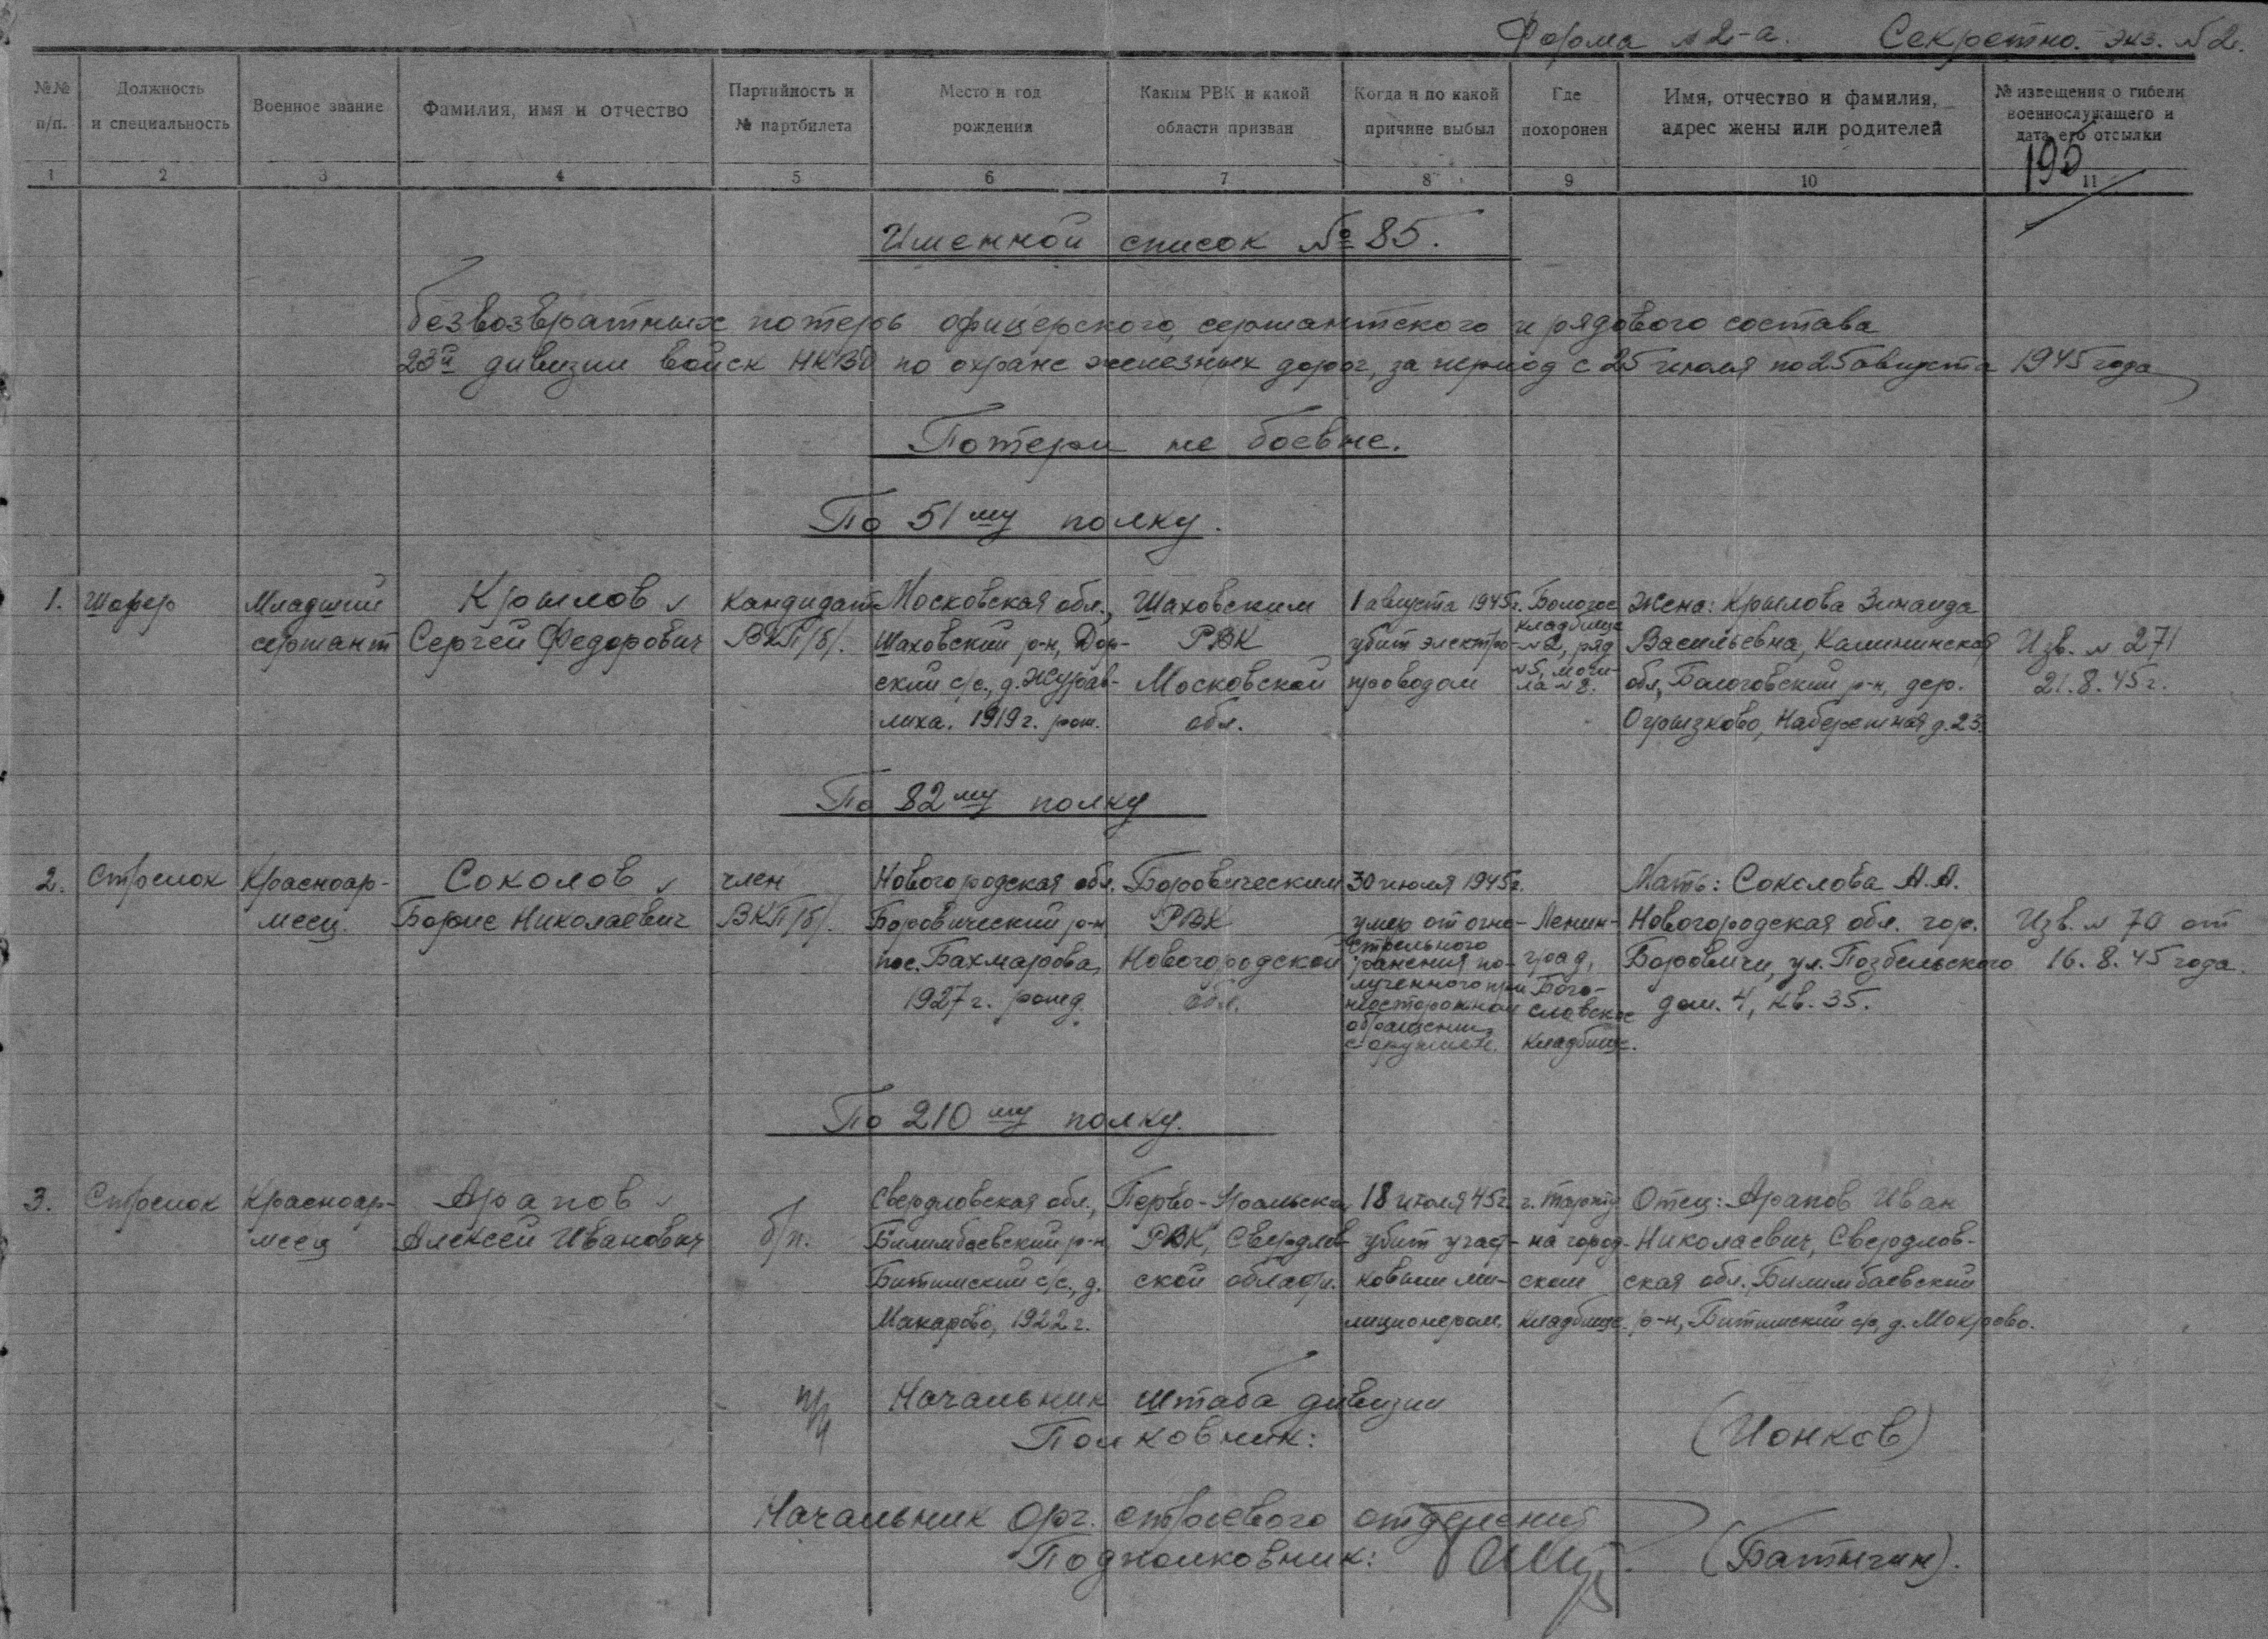 Форма № 2-а. Секретно. Экз. № 2.
№№ п/п.
Должность и специальность
Военное звание
Фамилия, имя и отчество
Партийность и № партбилета
Место и год рождения
Каким РВК и какой области призван
Когда и по какой причине выбыл
Где похоронен
Имя, отчество и фамилия, адрес жены или родителей
№ извещения о гибели военнослужащего и дата его отсылки
1 2 3 4 5 6 7 8 9 10 11
Именной список № 85.
безвозвратных потерь офицерского, сержантского и рядового состава
23й дивизии войск НКВД по охране железных дорог, за период с 25 июля по 25 августа 1945 года
Потери не боевые.
По 51му полку.
1.
Шофер
Младший
сержант
Крылов
Сергей Федорович
Кандидат
ВКП/б/.
Московская обл.,
Шаховский р-н, Дор-
ский с/с., д. Журав-
лиха. 1919 г. рож.
Шаховским
РВК
Московской
обл.
1 августа 1945г.
убит электро-
проводом
Бологое
кладбище
№2, ряд
№5, моги-
ла №8.
Жена: Крылова Зинаида
Васильевна, Калининская
обл, Бологовский р-н, дер.
Огрызково, Набережная, д. 23.
Изв. № 271
21.8.45 г.
По 82му полку
2.
Стрелок
Красноар-
меец.
Соколов
Борис Николаевич
член
ВКП/б/.
Новогородская обл.
Боровический р-н
пос. Бахмарова,
1927 г. рожд.
Боровическим
РВК
Новогородской
обл.
30 июля 1945г.
умер от огне-
стрельного
ранения по-
лученного при
неосторожном
обращении
с оружием.
Ленин-
град,
Бого-
словское
кладбище.
Мать: Соколова А.А.
Новогородская обл. гор.
Боровичи, ул. Позбельского
дом. 4, кв. 35.
Изв. № 70 от
16.8.45 года.
По 210му полку.
3.
Стрелок
Красноар-
меец
Арапов
Алексей Иванович
б/п.
Свердловская обл.,
Билимбаевский р-н
Битимский с/с., д.
Макарово, 1922 г.
Перво-Уральским
РВК, Свердлов-
ской области.
18 июля 45г.
убит участ-
ковым ми-
лиционером.
г. Тарту
на город-
ском
кладбище.
Отец: Арапов Иван
Николаевич, Свердлов-
ская обл. Билимбаевский
р-н, Битимский с/с, д. Макрово.
Начальник штаба дивизии
Полковник: (Ионков)
Начальник Орг. строевого отделения
Подполковник: (Батыгин).